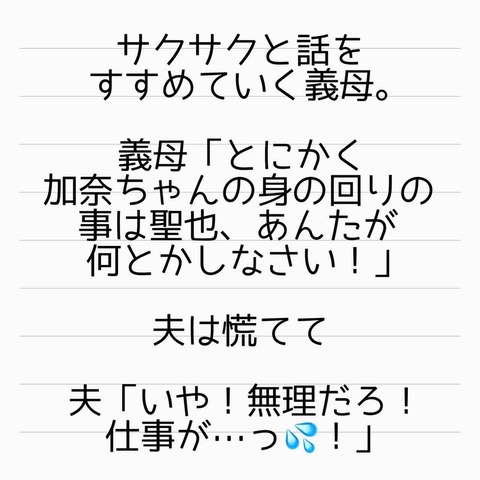 サクサクと話を
すすめていく義母。
義母「とにかく
加奈ちゃんの身の回りの
事は聖也、あんたが
何とかしなさい！」
夫は慌てて
夫「いや！無理だろ！
仕事が…っ💦！」